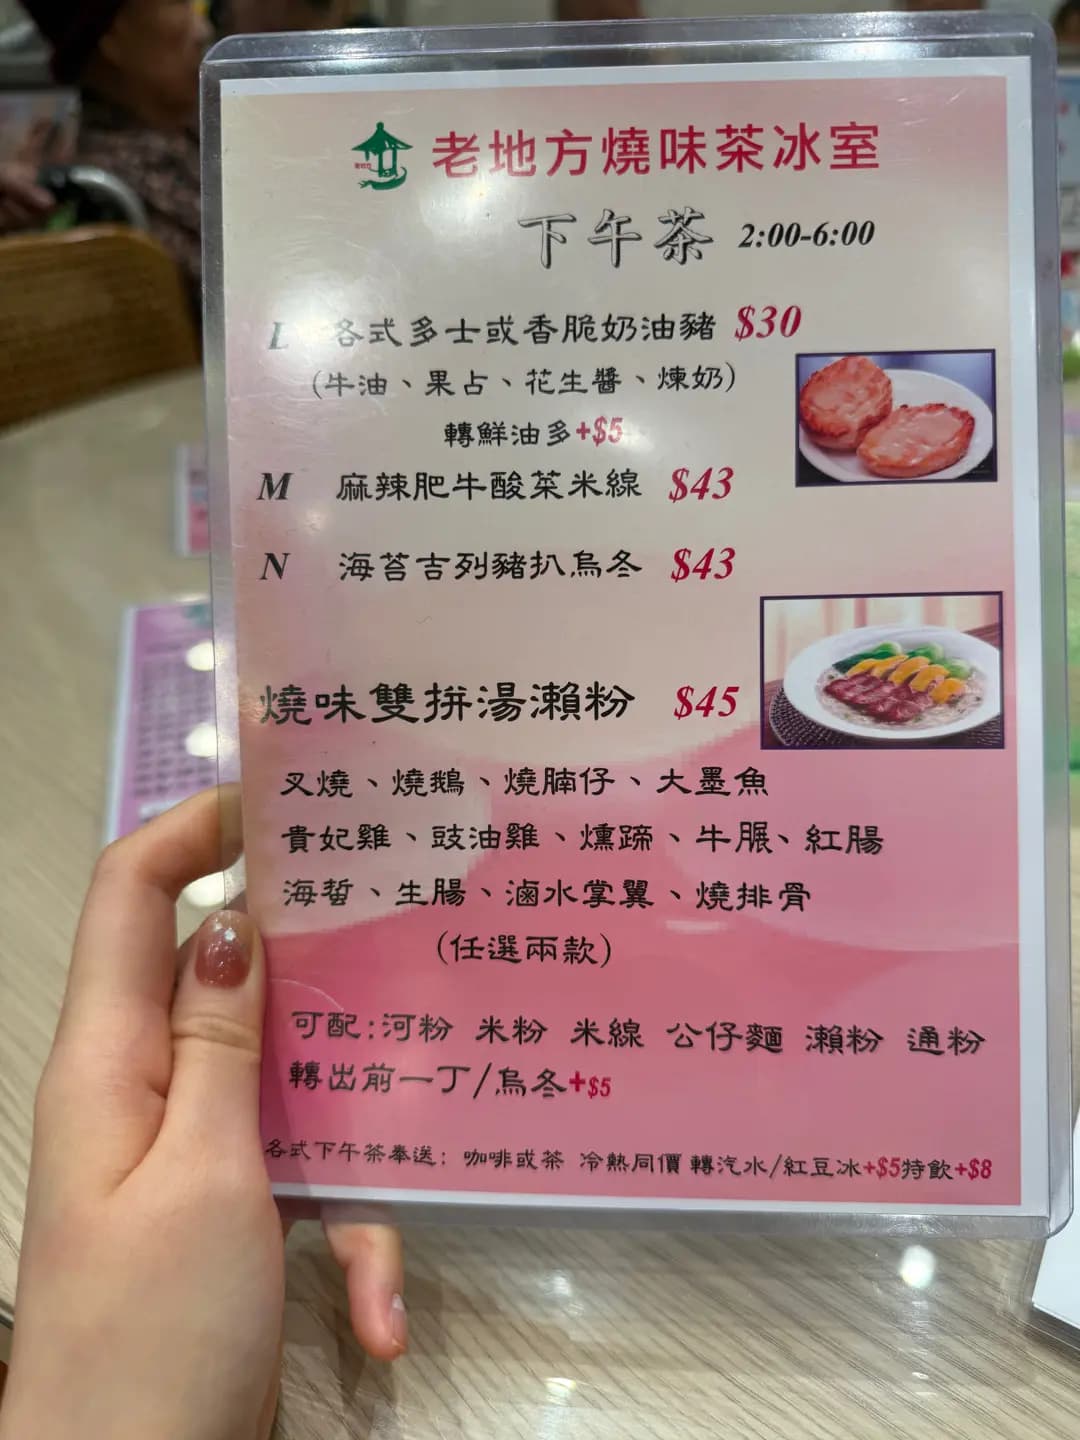 老地方燒味茶冰室
下午茶 2:00-6:00
L 各式多士或香脆奶油豬 $30
(牛油、果占、花生醬、煉奶)
轉鮮油多+$5
M 麻辣肥牛酸菜米線 $43
N 海苔吉列豬扒烏冬 $43
燒味雙拼湯瀨粉 $45
叉燒、燒鵝、燒腩仔、大墨魚
貴妃雞、豉油雞、燻蹄、牛𦟌、紅腸
海蜇、生腸、滷水掌翼、燒排骨
(任選兩款)
可配:河粉 米粉 米線 公仔麵 瀨粉 通粉
轉出前一丁/烏冬+$5
各式下午茶奉送: 咖啡或茶 冷熱同價 轉汽水/紅豆冰+$5特飲+$8